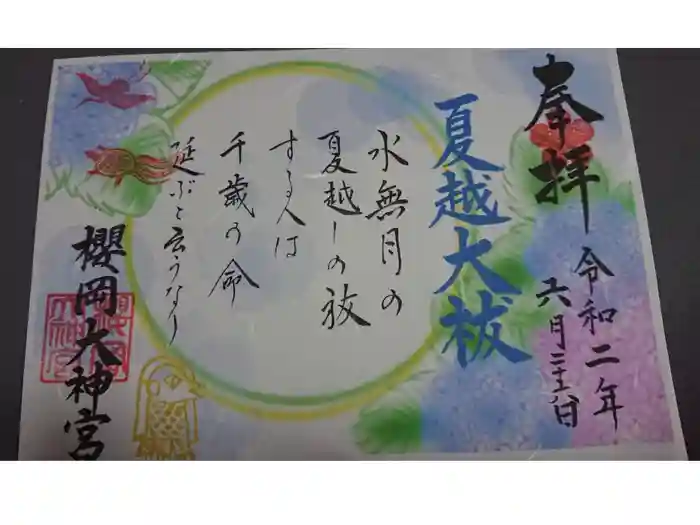 奉拝
令和二年
六月二十五日
夏越大祓
水無月の
夏越しの祓
する人は
千歳の命
延ぶと云うなり
櫻岡大神宮
櫻岡
大神宮